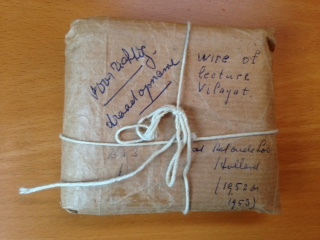 voorzichtig.
draadopname
wire of
lecture
Vilayat.
at
Holland
(1952 or
1953)